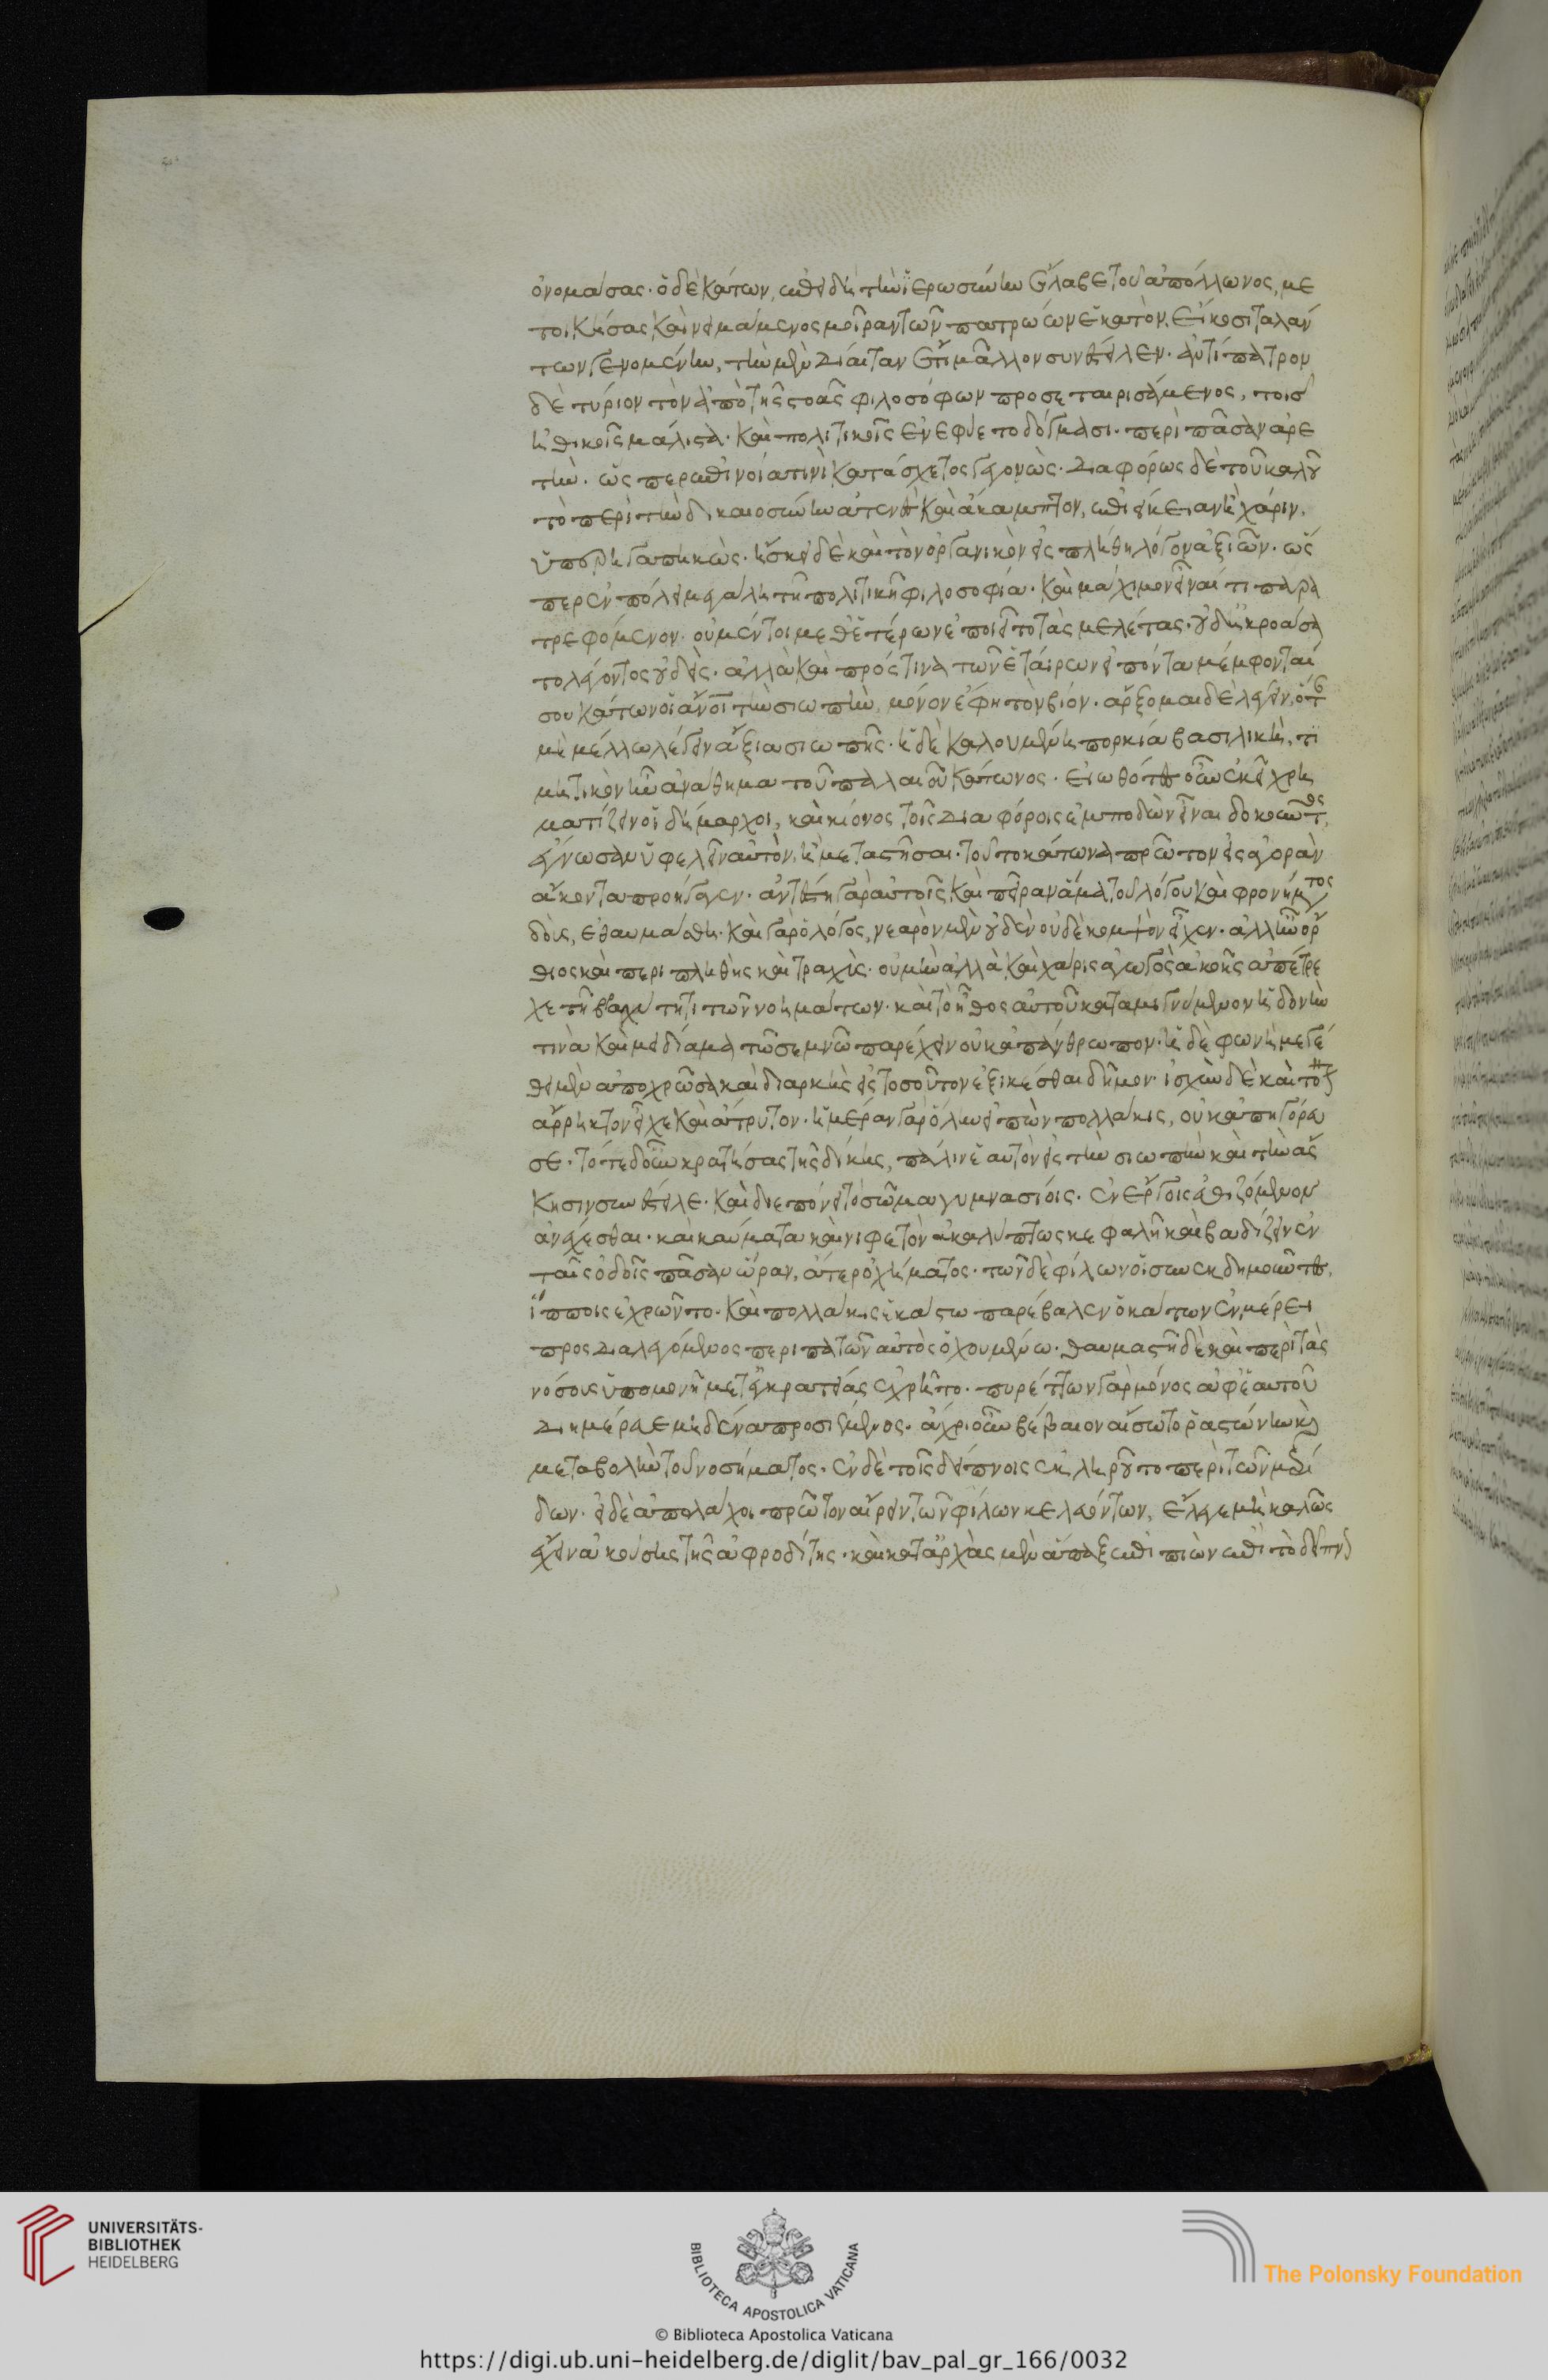 ὀνομάσας· ὁ δὲ κάτων, ἐπειδὴ τὴν ἱερωσύνην ἔλαβε τοῦ ἀπόλλωνος, με
τοικήσας καὶ νειμάμενος μοῖραν τῶν πατρώων ἑκατὸν εἴκοσι ταλάν
των γενομένην, τὴν μὲν δίαιταν ἔτι μᾶλλον συνέστειλεν. ἀντίπατρον
δὲ τύριον τὸν ἀπὸ τῆς στοᾶς φιλοσόφων προσεταιρισάμενος, τοῖς
ἠθικοῖς μάλιστα· καὶ πολιτικοῖς ἐνεφύετο δόγμασι· περὶ πᾶσαν ἀρε
τὴν· ὥσπερ ἐπινοία τινὶ κατάσχετος γεγονὼς· διαφόρως δὲ τοῦ καλοῦ
τὸ περὶ τὴν δικαιοσύνην ἀτενὲς καὶ ἄκαμπτον, ἐπιείκειαν ἢ χάριν,
ὑπερηγαπηκὼς· ἤσκει δὲ καὶ τὸν ὀργανικὸν εἰς πλήθη λόγον ἀξιῶν· ὥς
περ ἐν πόλει μεγάλη τῆ πολιτικῆ φιλοσοφία· καὶ μάχιμον εἶναί τι παρα
τρεφόμενον· οὐ μέντοι μεθ' ἑτέρων ἐποιεῖτο τὰς μελέτας· οὐδ' ἠκροάσα
το λέγοντος οὐδεὶς· ἀλλὰ καὶ πρός τινα τῶν ἑταίρων εἰπόντα μέμφονταί
σου κάτων οἱ ἄνοι τὴν σιωπὴν, μόνον ἔφη τὸν βίον· ἄρξομαι δὲ λέγειν, ὅτε
μὴ μέλλω λέγειν ἄξια σιωπῆς· ἡ δὲ καλουμένη πορκία βασιλικὴ, τι
μητικὸν ἦν ἀνάθημα τοῦ παλαιοῦ κάτωνος. εἰωθότες οὖν ἐκεῖ χρη
ματίζειν οἱ δήμαρχοι, καὶ κίονος τοῖς διαφόροις ἐμποδὼν εἶναι δοκοῦντος,
ἔγνωσαν ὑφελεῖν αὐτὸν, ἢ μεταστῆσαι· τοῦτο κάτωνα πρῶτον εἰς ἀγορὰν
ἄκοντα προήγαγεν· ἀντέστη γὰρ αὐτοῖς, καὶ πεῖραν ἅμα τοῦ λόγου καὶ φρονήματος
δοὺς, ἐθαυμάσθη. καὶ γὰρ ὁ λόγος, νεαρὸν μὲν οὐδὲν οὐδὲ κομψὸν εἶχεν· ἀλλ' ἦν ὄρ
θιος καὶ περιπληθὴς καὶ τραχὺς· οὐ μὴν ἀλλὰ καὶ χάρις ἀγωγὸς ἀκοῆς ἀπέτρε
χε τῆ βραχύτητι τῶν νοημάτων· καὶ τὸ ἦθος αὐτοῦ καταμιγνύμενον ἡδονὴν
τινὰ καὶ μειδίαμα τῶ σεμνῶ παρέχειν οὐκ ἀπάνθρωπον· ἡ δὲ φωνὴ μεγέ
θει μὲν ἀποχρῶσα καὶ διαρκὴς εἰς τοσοῦτον ἐξικέσθαι δῆμον. ἰσχὺν δὲ καὶ
ἄρρηκτον εἶχε καὶ ἄτρυτον· ἡμέραν γὰρ ὅλην εἰπὼν πολλάκις, οὐκ ἀπηγόρευ
σε. τότε δ' οὖν κρατήσας τῆς δίκης, πάλιν ἑαυτὸν εἰς τὴν σιωπὴν καὶ τὴν ἄσ
κησιν συνέστειλε. καὶ διεπόνει τὸ σῶμα γυμνασίοις. ἐνεργοῖς ἐθιζόμενον
ἀνέχεσθαι· καὶ καύματα καὶ νιφετὸν ἀκαλύπτως κεφαλῆ καὶ βαδίζειν ἐν
ταῖς ὁδοῖς πᾶσαν ὥραν, ἄτερ ὀχήματος· τῶν δὲ φίλων οἳ συνεκδημοῦντες,
ἵπποις ἐχρῶντο. καὶ πολλάκις ἑκάστω παρέβαλεν ὁ κάτων ἐν μέρει
προσδιαλεγόμενος περιπατῶν αὐτὸς ὀχουμένω. θαυμαστῆ δὲ καὶ περὶ τὰς
νόσους ὑπομονῆ μετ' ἐγκρατείας ἐχρῆτο. πυρέττων γὰρ μόνος ἀφ' ἑαυτοῦ
διημέρευε μηδένα προσιέμενος. ἄχρι οὖν βέβαιον αἴσθοιτο ῥαστώνην καὶ
μεταβολὴν τοῦ νοσήματος. ἐν δὲ τοῖς δείπνοις ἐκληροῦτο περὶ τῶν μερί
δων· εἰ δὲ ἀπολάχοι πρῶτον αἴρειν τῶν φίλων κελευόντων, ἔλεγε μὴ καλῶς
ἔχειν ἀκούσης τῆς ἀφροδίτης· καὶ κατ' ἀρχὰς μὲν ἅπαξ ἐπιπιὼν ἐπὶ τὸ δεῖπνον
UNIVERSITÄTS-
BIBLIOTHEK
HEIDELBERG
BIBLIOTECA APOSTOLICA VATICANA
The Polonsky Foundation
© Biblioteca Apostolica Vaticana
https://digi.ub.uni-heidelberg.de/diglit/bav_pal_gr_166/0032